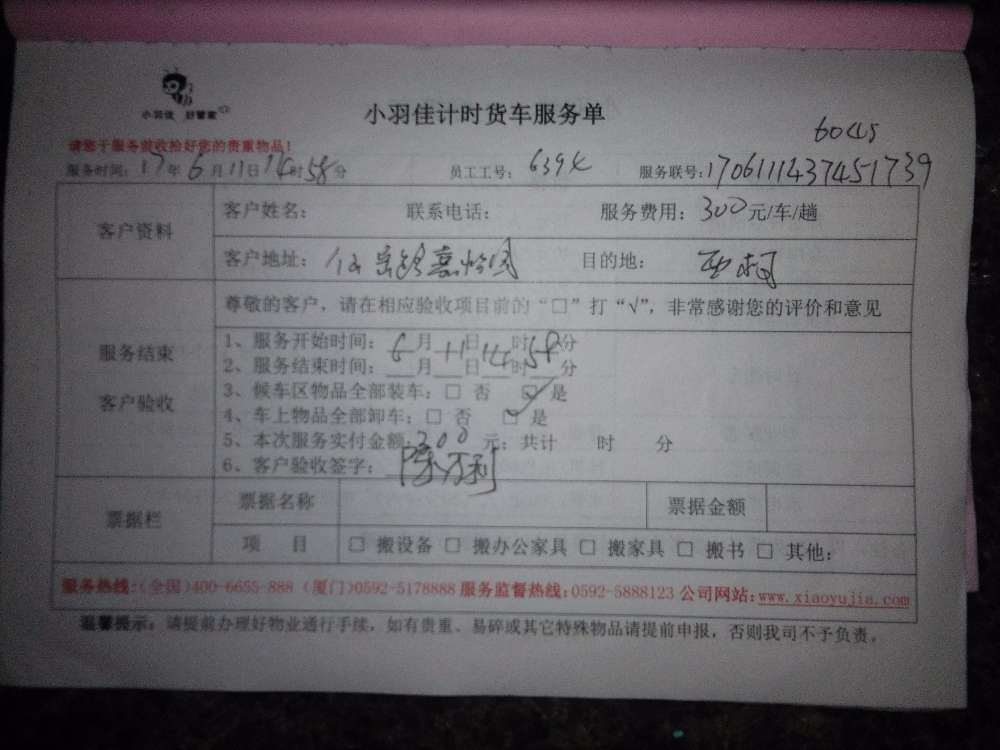 小羽佳 好管家
小羽佳计时货车服务单
请您于服务前收拾好您的贵重物品！
服务时间：17年6月11日14时58分 员工工号： 服务联号：1706111437451739
客户资料
客户姓名： 联系电话： 服务费用：300元/车/趟
客户地址： 目的地：西柯
服务结束
客户验收
尊敬的客户，请在相应验收项目前的“□”打“√”，非常感谢您的评价和意见
1、服务开始时间：6月11日14时58分
2、服务结束时间：__月__日__时__分
3、候车区物品全部装车：□ 否 □ 是
4、车上物品全部卸车：□ 否 □ 是
5、本次服务实付金额：300元；共计 时 分
6、客户验收签字：
票据栏
票据名称 票据金额
项 目 □ 搬设备 □ 搬办公家具 □ 搬家具 □ 搬书 □ 其他：
服务热线：(全国)400-6655-888 (厦门)0592-5178888 服务监督热线：0592-5888123 公司网站：www.xiaoyujia.com
温馨提示：请提前办理好物业通行手续，如有贵重、易碎或其它特殊物品请提前申报，否则我司不予负责。